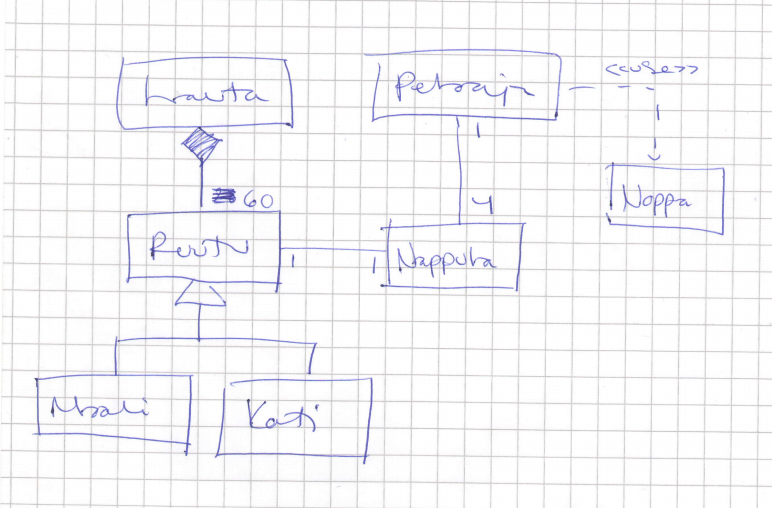 Lauta
Pelaaja
<<use>>
1
60
4
Noppa
Ruutu
1
1
Nappula
Maali
Koti